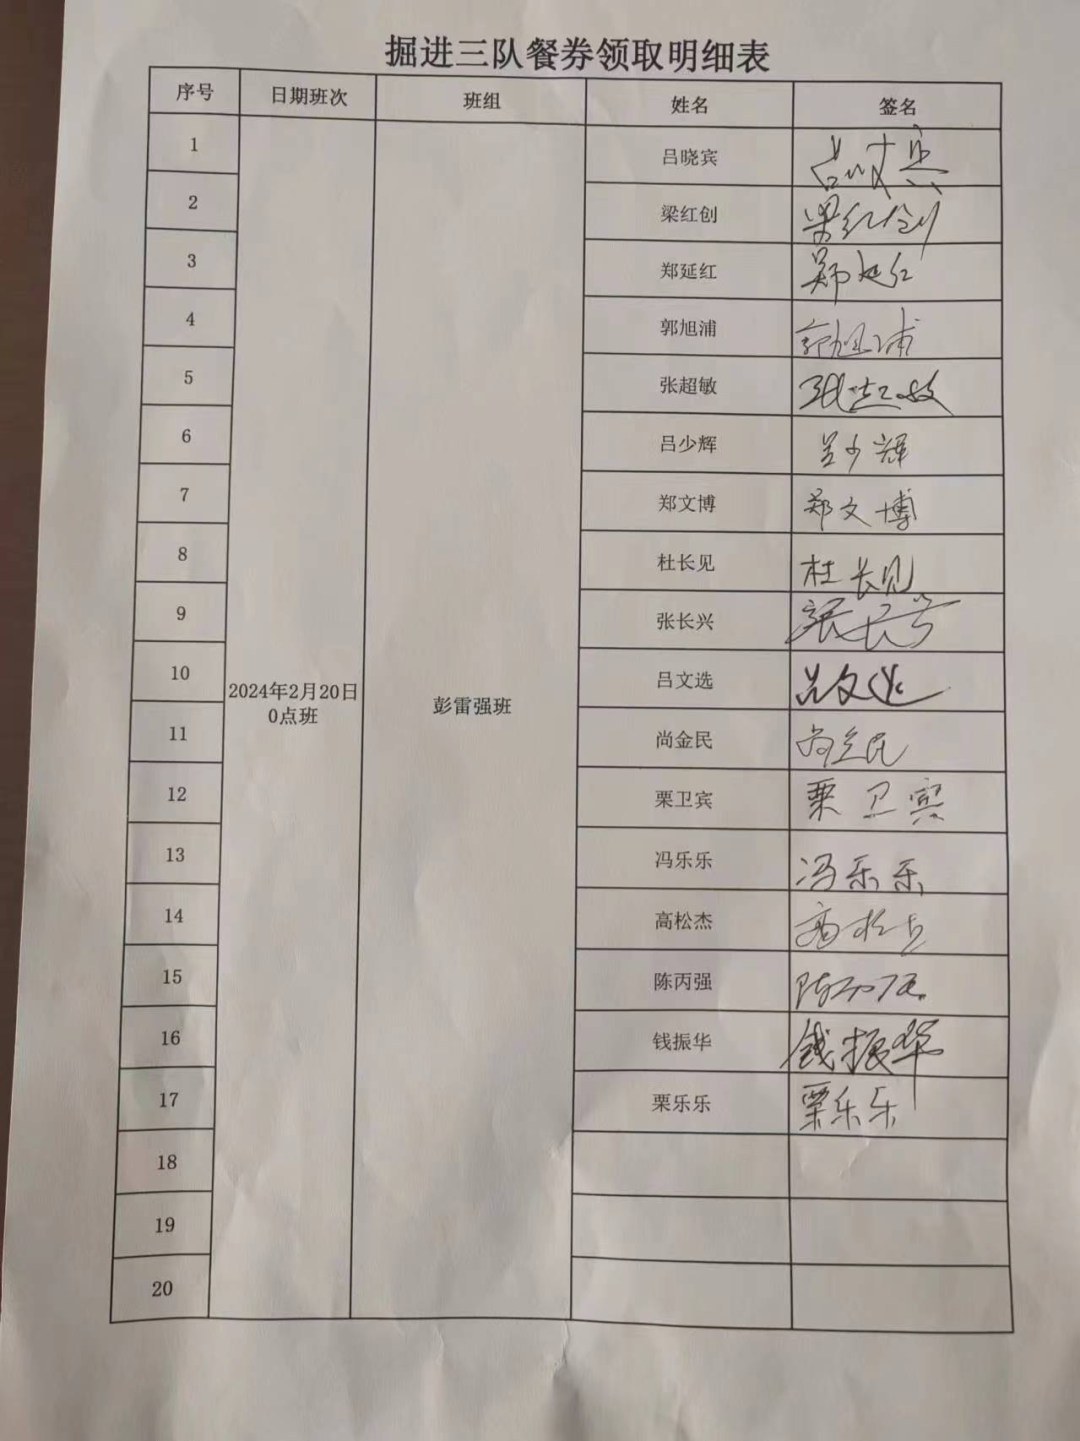 掘进三队餐券领取明细表
序号 日期班次 班组 姓名 签名
1 吕晓宾 吕晓宾
2 梁红创 梁红创
3 郑延红 郑延红
4 郭旭浦 郭旭浦
5 张超敏 张超敏
6 吕少辉 吕少辉
7 郑文博 郑文博
8 杜长见 杜长见
9 张长兴 张长兴
10 吕文选 吕文选
2024年2月20日
0点班
彭雷强班
11 尚金民 尚金民
12 栗卫宾 栗卫宾
13 冯乐乐 冯乐乐
14 高松杰 高松杰
15 陈丙强 陈丙强
16 钱振华 钱振华
17 栗乐乐 栗乐乐
18
19
20